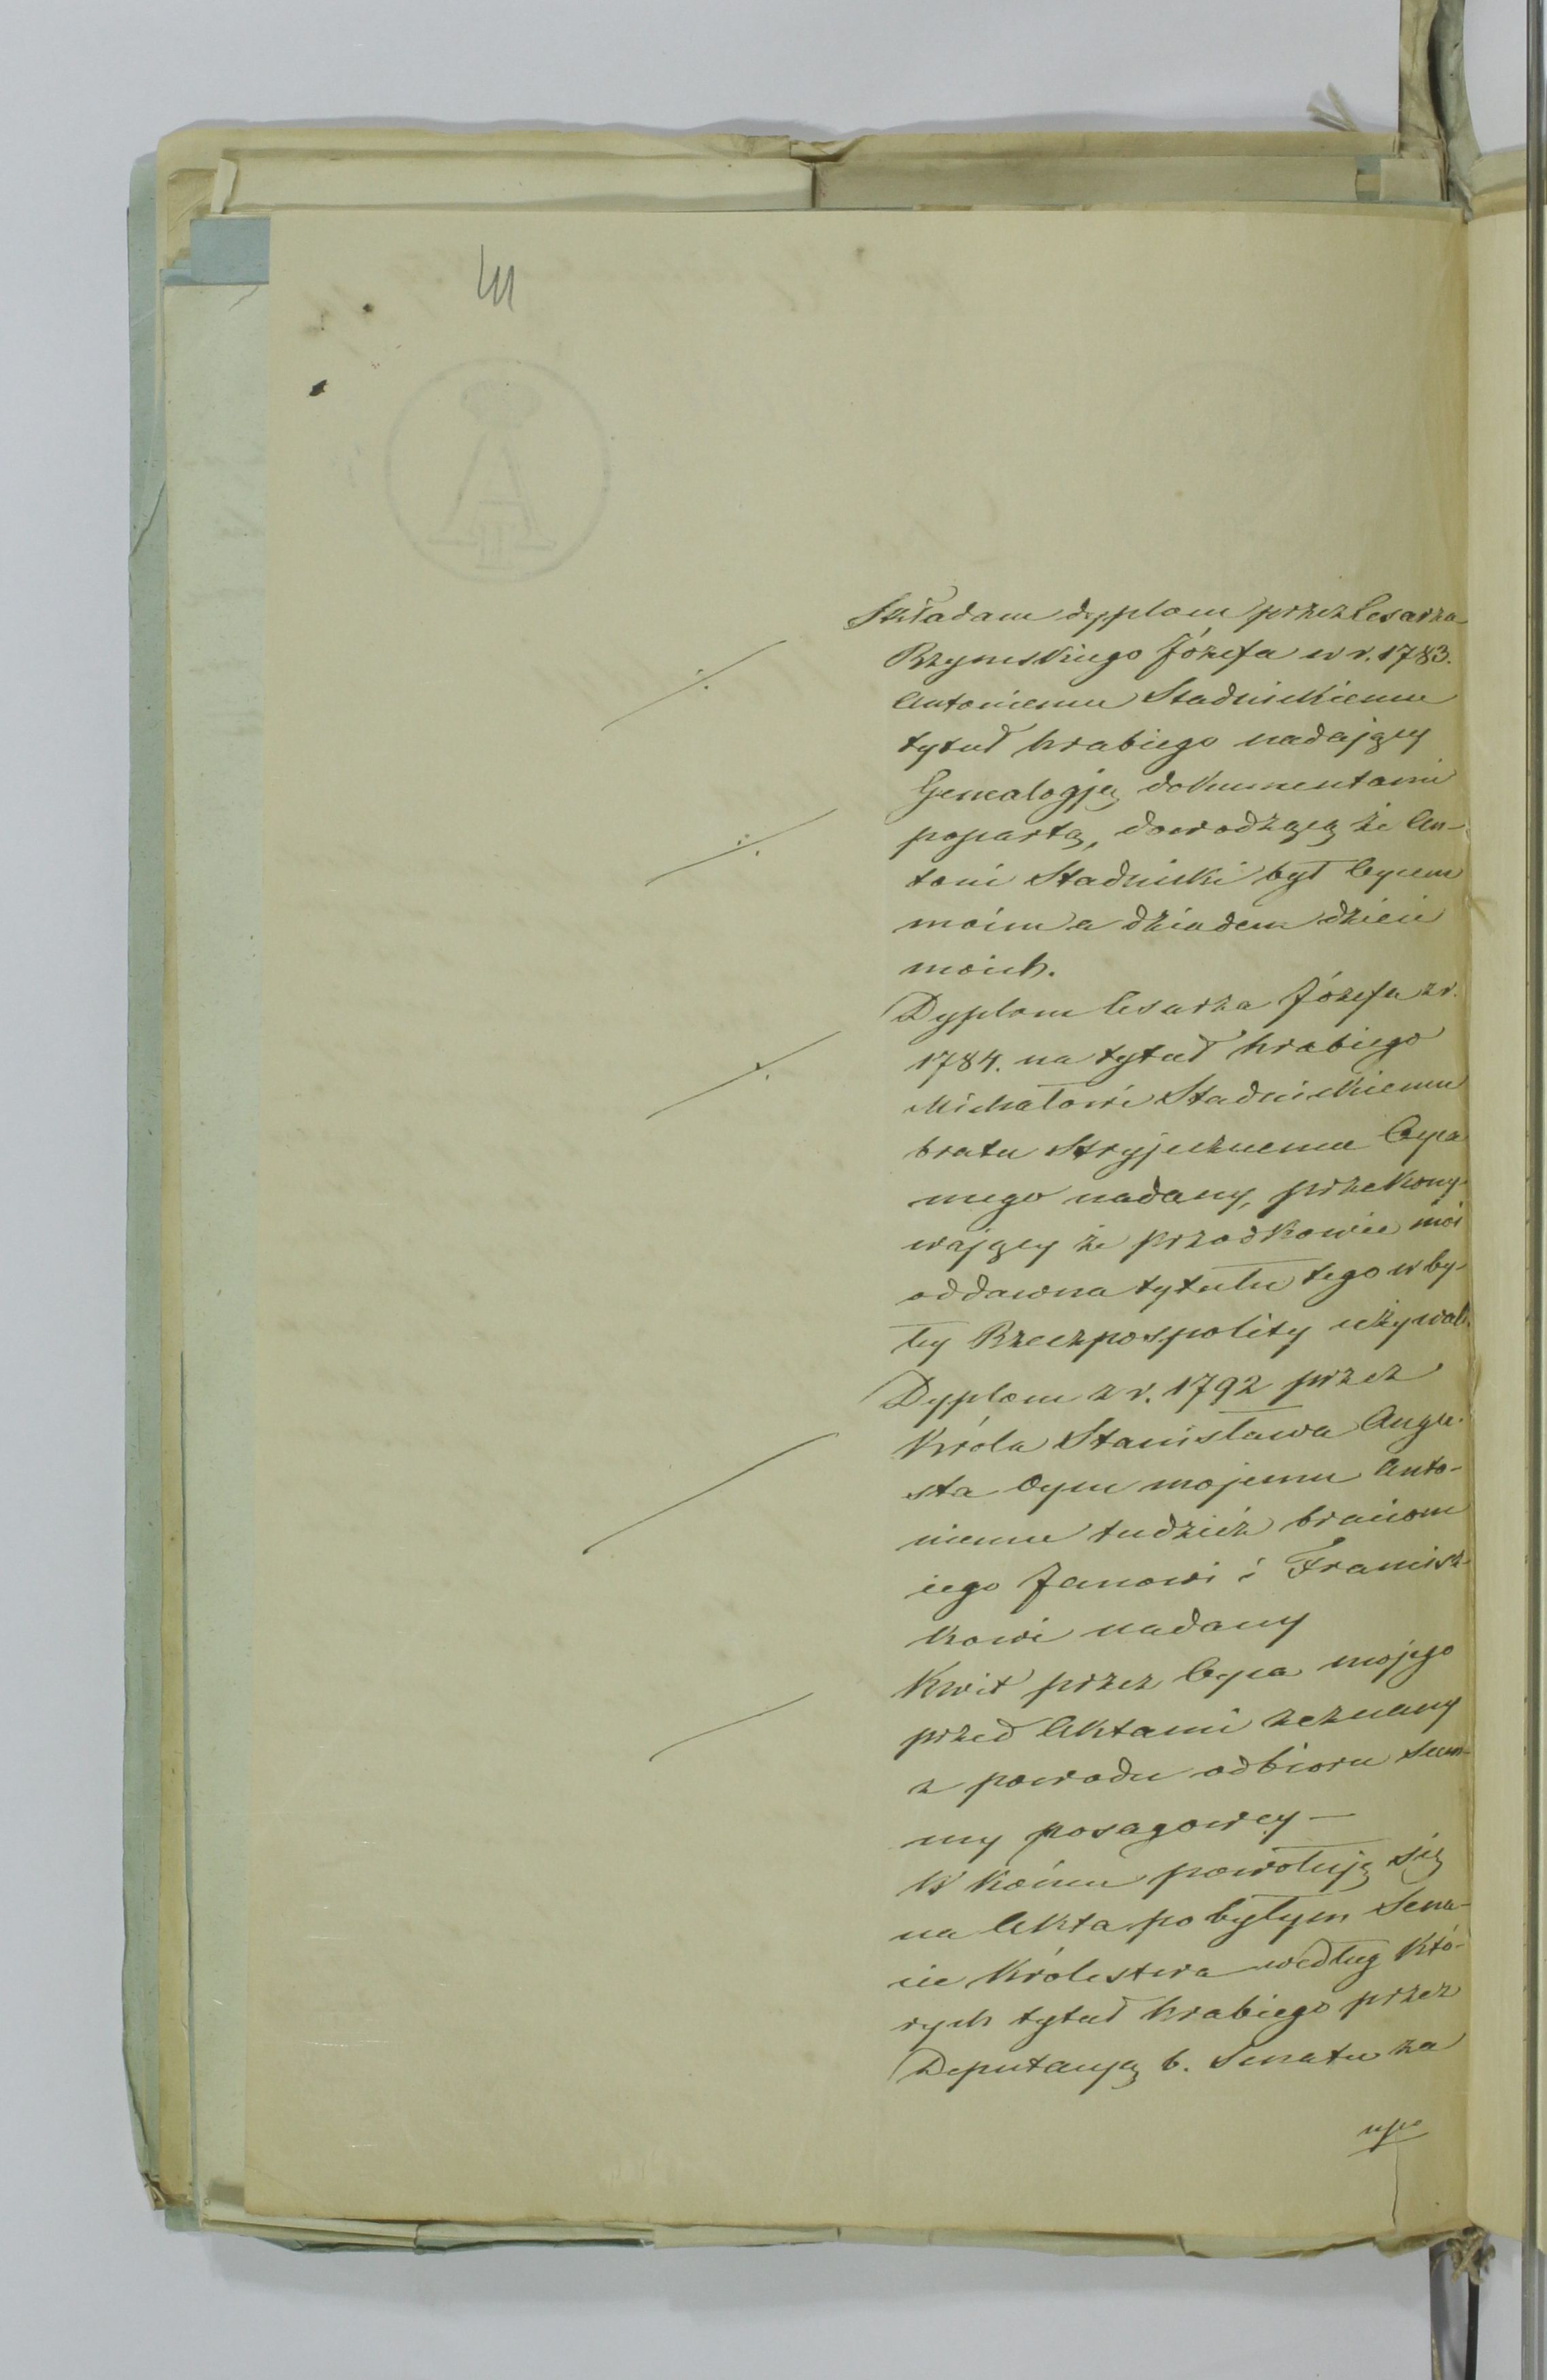 Składam dypplom przez Cesarza
Rzymskiego Józefa w r. 1783.
Antoniemu Stadnickiemu
tytuł hrabiego nadający
Genealogję dokumentami
popartą, dowodzącą że An-
toni Stadnicki był Oycem
moim a dziadem dzieci
moich.
Dyplom Cesarza Józefa z r.
1784. na tytuł hrabiego
Michałowi Stadnickiemu
bratu Stryjecznemu Oyca
mego nadany, przekony-
wający że przodkowie moi
oddawna tytułu tego w by-
łey Rzeczpospolity używali.
Dyplom z r. 1792 przez
Króla Stanisława Augu-
sta Oycu mojemu Anto-
niemu tudzież braciom
iego Janowi i Francisz-
kowi nadany
Kwit przez Oyca mojego
przed Aktami zeznany
z powodu odbioru sum-
my posagowey —
W końcu powołuję się
na Akta po byłym Sena-
cie Królestwa według któ-
rych tytuł hrabiego przez
Deputacyą b. Senatu za